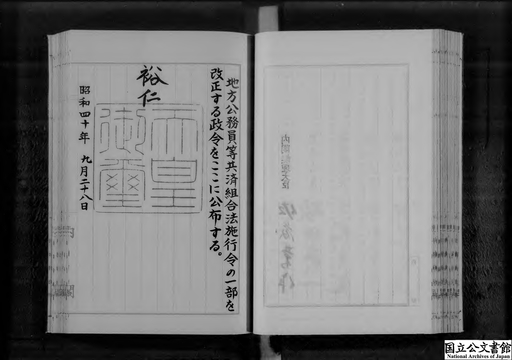 地方公務員等共済組合法施行令の一部を
改正する政令をここに公布する。
裕仁
天皇
御璽
昭和四十年 九月二十八日
国立公文書館
National Archives of Japan